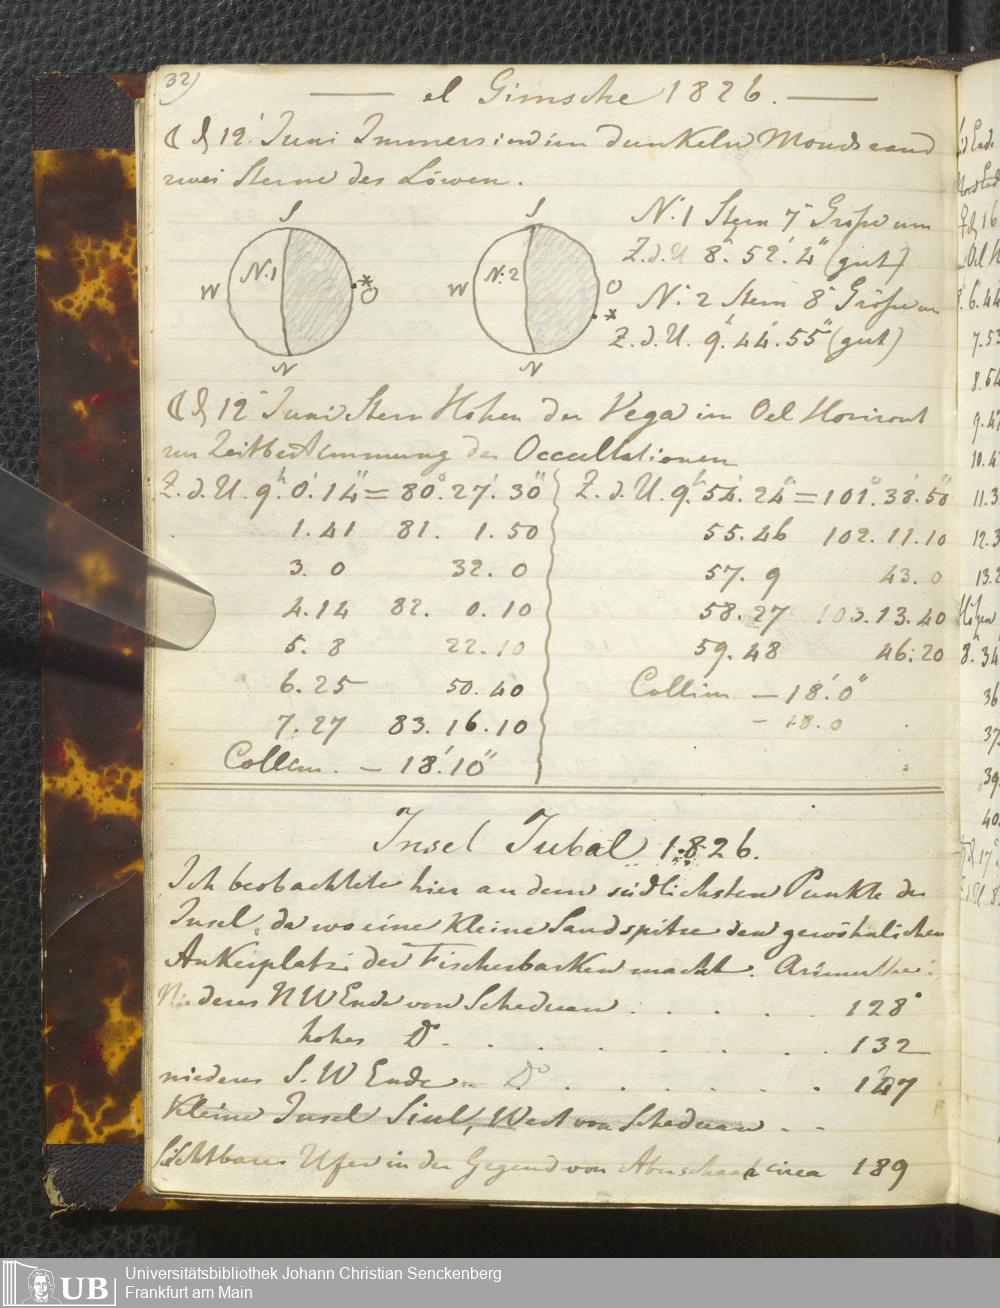 32)
el Gimsche 1826.
☾ d 12t Juni Immersion im dunkeln Mondsrand
zwei Sterne des Löwen.
S
W
N:1
O
N
S
W
N:2
O
N
N:1 Stern 7r Größe um
Z.d.U 8h. 52'. 4" (gut)
N: 2 Stern 8r Größe um
Z.d.U. 9h. 44'. 55" (gut)
☾ d 12t Juni Stern Höhen der Vega im Oel Horizont
zur Zeitbestimmung der Occultationen
Z.d.U. 9h. 0'. 14" = 80°. 27'. 30"
1. 41 81. 1. 50
3. 0 32. 0
4. 14 82. 0. 10
5. 8 22. 10
6. 25 50. 40
7. 27 83. 16. 10
Collim. – 18'. 10"
Z.d.U. 9h. 54'. 24" = 101°. 38'. 50
55. 46 102. 11. 10
57. 9 43. 0
58. 27 103. 13. 40
59. 48 46. 20
Collim – 18'. 0"
– 18. 0
Insel Jubal 1826.
Ich beobachtete hier an dem südlichsten Punkte der
Insel, da wo eine kleine Sandspitze den gewöhnlichen
Ankerplatz der Fischerbarken macht. Azimuthe:
Niederes N W Ende von Scheduan . . . . . 128°
hohes Do . . . . . . . 132
niederes S. W Ende . Do . . . . . . 147
Kleine Insel Siul, West von Scheduan . .
Sichtbares Ufer in der Gegend von circa 189
Universitätsbibliothek Johann Christian Senckenberg
Frankfurt am Main
UB